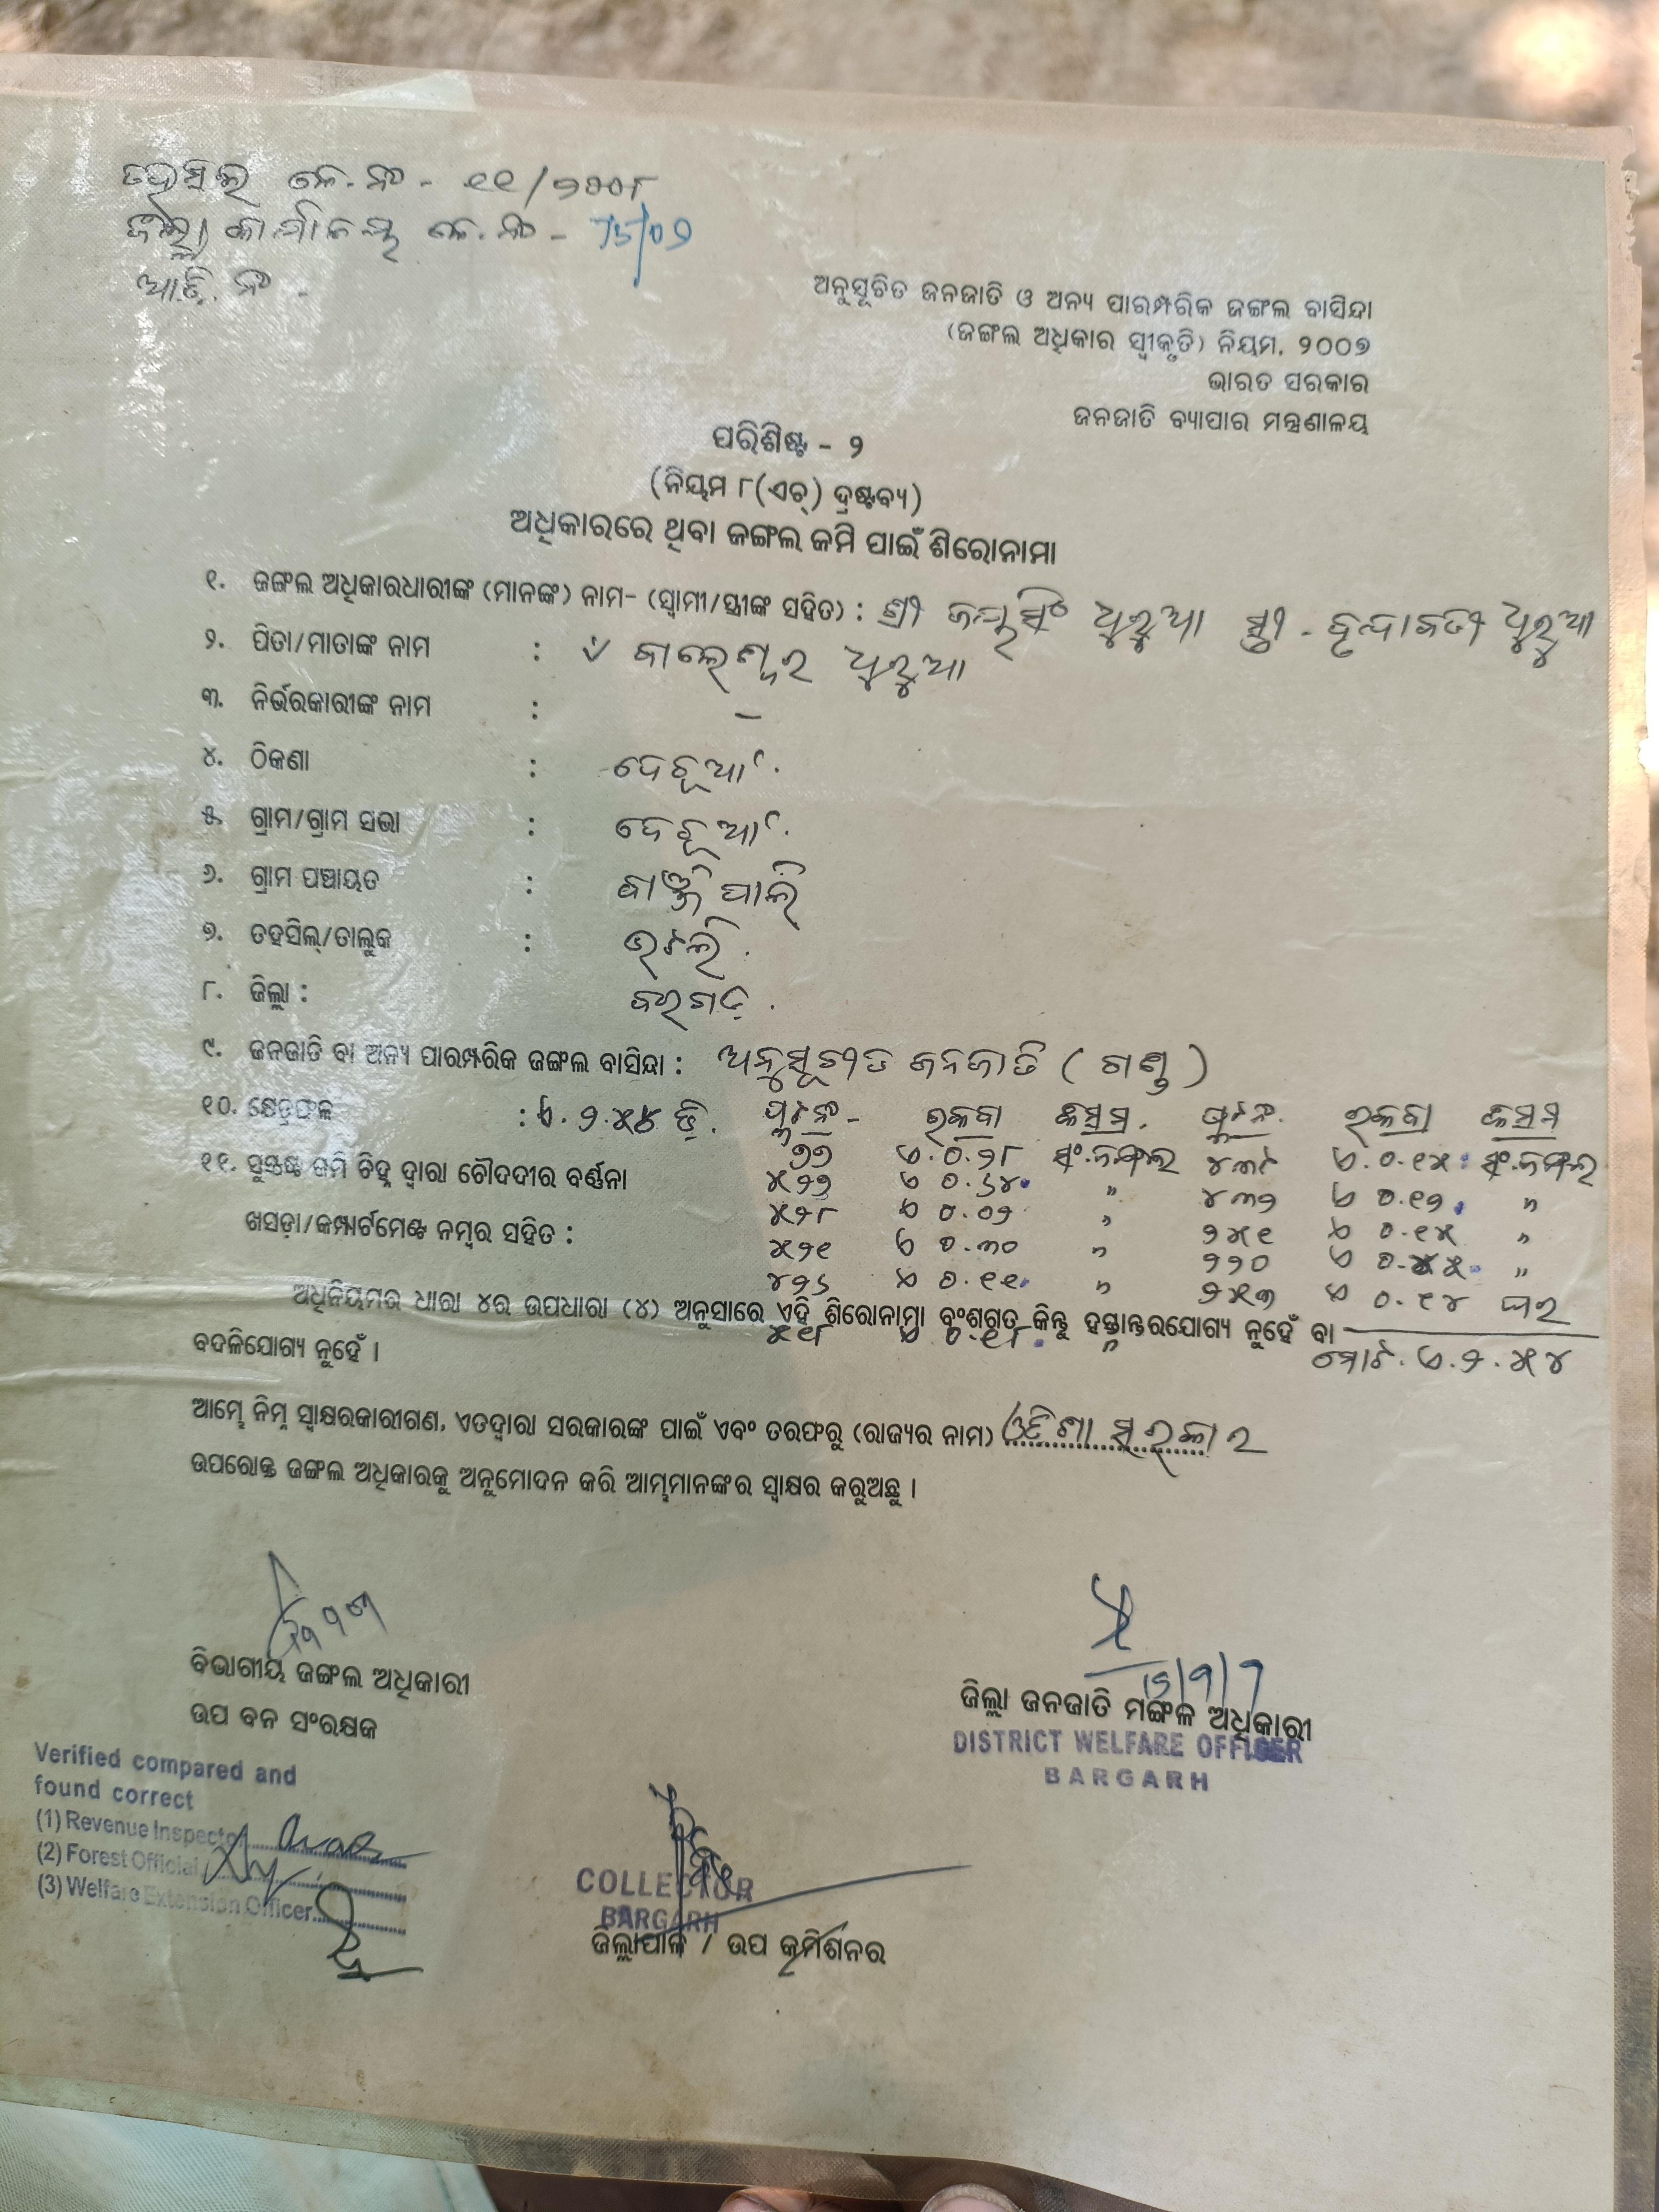 ତହସିଲ କେ.ନଂ - ୧୧/୨୦୦୮
ଜିଲ୍ଲା କାର୍ଯ୍ୟାଳୟ କେ.ନଂ -
ଆଇ.ନଂ -
ଅନୁସୂଚିତ ଜନଜାତି ଓ ଅନ୍ୟ ପାରମ୍ପରିକ ଜଙ୍ଗଲ ବାସିନ୍ଦା
(ଜଙ୍ଗଲ ଅଧିକାର ସ୍ୱୀକୃତି) ନିୟମ, ୨୦୦୭
ଭାରତ ସରକାର
ଜନଜାତି ବ୍ୟାପାର ମନ୍ତ୍ରଣାଳୟ
ପରିଶିଷ୍ଟ - ୨
(ନିୟମ ୮(ଏଚ୍) ଦ୍ରଷ୍ଟବ୍ୟ)
ଅଧିକାରରେ ଥିବା ଜଙ୍ଗଲ ଜମି ପାଇଁ ଶିରୋନାମା
୧. ଜଙ୍ଗଲ ଅଧିକାରଧାରୀଙ୍କ (ମାନଙ୍କ) ନାମ- (ସ୍ୱାମୀ/ସ୍ତ୍ରୀଙ୍କ ସହିତ) : ଶ୍ରୀ ଜୟସିଂ ଧୁରୁଆ ସ୍ତ୍ରୀ - ବୃନ୍ଦାବତୀ ଧୁରୁଆ
୨. ପିତା/ମାତାଙ୍କ ନାମ : ବାଲେଶ୍ୱର ଧୁରୁଆ
୩. ନିର୍ଭରକାରୀଙ୍କ ନାମ : –
୪. ଠିକଣା : ଦେଚୂଆଁ.
୫. ଗ୍ରାମ/ଗ୍ରାମ ସଭା : ଦେଚୂଆଁ.
୬. ଗ୍ରାମ ପଞ୍ଚାୟତ : ବାଞ୍ଜିପାଲି
୭. ତହସିଲ୍/ତାଲୁକ : ଭଟଲି.
୮. ଜିଲ୍ଲା : ବରଗଡ଼.
୯. ଜନଜାତି ବା ଅନ୍ୟ ପାରମ୍ପରିକ ଜଙ୍ଗଲ ବାସିନ୍ଦା : ଅନୁସୂଚୀତ ଜନଜାତି (ଗଣ୍ଡ)
୧୦. କ୍ଷେତ୍ରଫଳ : ଏ.୨.୫୪ ଡି. ପ୍ଲଟନଂ - ରକବା କିସମ. ପ୍ଲଟନଂ. ରକବା କିସମ
୭୭ ଏ.୦.୨୮ ସଂ.ଜଙ୍ଗଲ ୪୩୮ ଏ.୦.୧୫ ସଂ.ଜଙ୍ଗଲ
୧୧. ସୁସ୍ପଷ୍ଟ ଜମି ଚିହ୍ନ ଦ୍ୱାରା ଚୌହଦୀର ବର୍ଣ୍ଣନା
୫୨୭ ଏ ୦.୬୪ " ୪୩୨ ଏ ୦.୧୨ "
ଖସଡ଼ା/କମ୍ପାର୍ଟମେଣ୍ଟ ନମ୍ବର ସହିତ :
୫୨୮ ଏ ୦.୦୨ " ୨୫୧ ଏ ୦.୧୫ "
୫୨୧ ଏ ୦.୩୦ " ୨୨୦ ଏ "
୪୨୬ ଏ ୦.୧୧ " ୨୫୩ ଏ ୦.୧୪ ଘର
ଅଧିନିୟମର ଧାରା ୪ର ଉପଧାରା (୪) ଅନୁସାରେ ଏହି ଶିରୋନାମା ବଂଶଗତ କିନ୍ତୁ ହସ୍ତାନ୍ତରଯୋଗ୍ୟ ନୁହେଁ ବା
୫୧୮ ଏ ୦.୧୮ "
ବଦଳିଯୋଗ୍ୟ ନୁହେଁ ।
ମୋଟ. ଏ.୨.୫୪
ଆମ୍ଭେ ନିମ୍ନ ସ୍ୱାକ୍ଷରକାରୀଗଣ, ଏତଦ୍ୱାରା ସରକାରଙ୍କ ପାଇଁ ଏବଂ ତରଫରୁ (ରାଜ୍ୟର ନାମ) ଓଡିଶା ସରକାର
ଉପରୋକ୍ତ ଜଙ୍ଗଲ ଅଧିକାରକୁ ଅନୁମୋଦନ କରି ଆମ୍ଭମାନଙ୍କର ସ୍ୱାକ୍ଷର କରୁଅଛୁ ।
ବିଭାଗୀୟ ଜଙ୍ଗଲ ଅଧିକାରୀ
ଉପ ବନ ସଂରକ୍ଷକ
ଜିଲ୍ଲା ଜନଜାତି ମଙ୍ଗଳ ଅଧିକାରୀ
DISTRICT WELFARE OFFICER
BARGARH
Verified compared and
found correct
(1) Revenue Inspector
(2) Forest Official
(3) Welfare Extension Officer
COLLECTOR
BARGARH
ଜିଲ୍ଲାପାଳ / ଉପ କମିଶନର